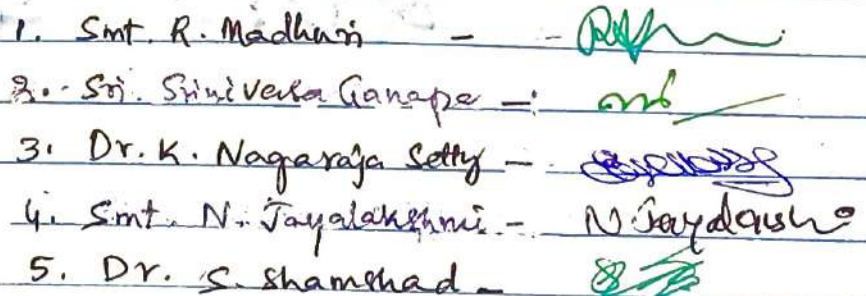 1. Smt. R. Madhuri - -
2. Sri. Srinivasa Ganapa -:
3. Dr. K. Nagaraja Setty -
4. Smt. N. Jayalakshmi - N. Jayalaksh
5. Dr. S. Shamshad -